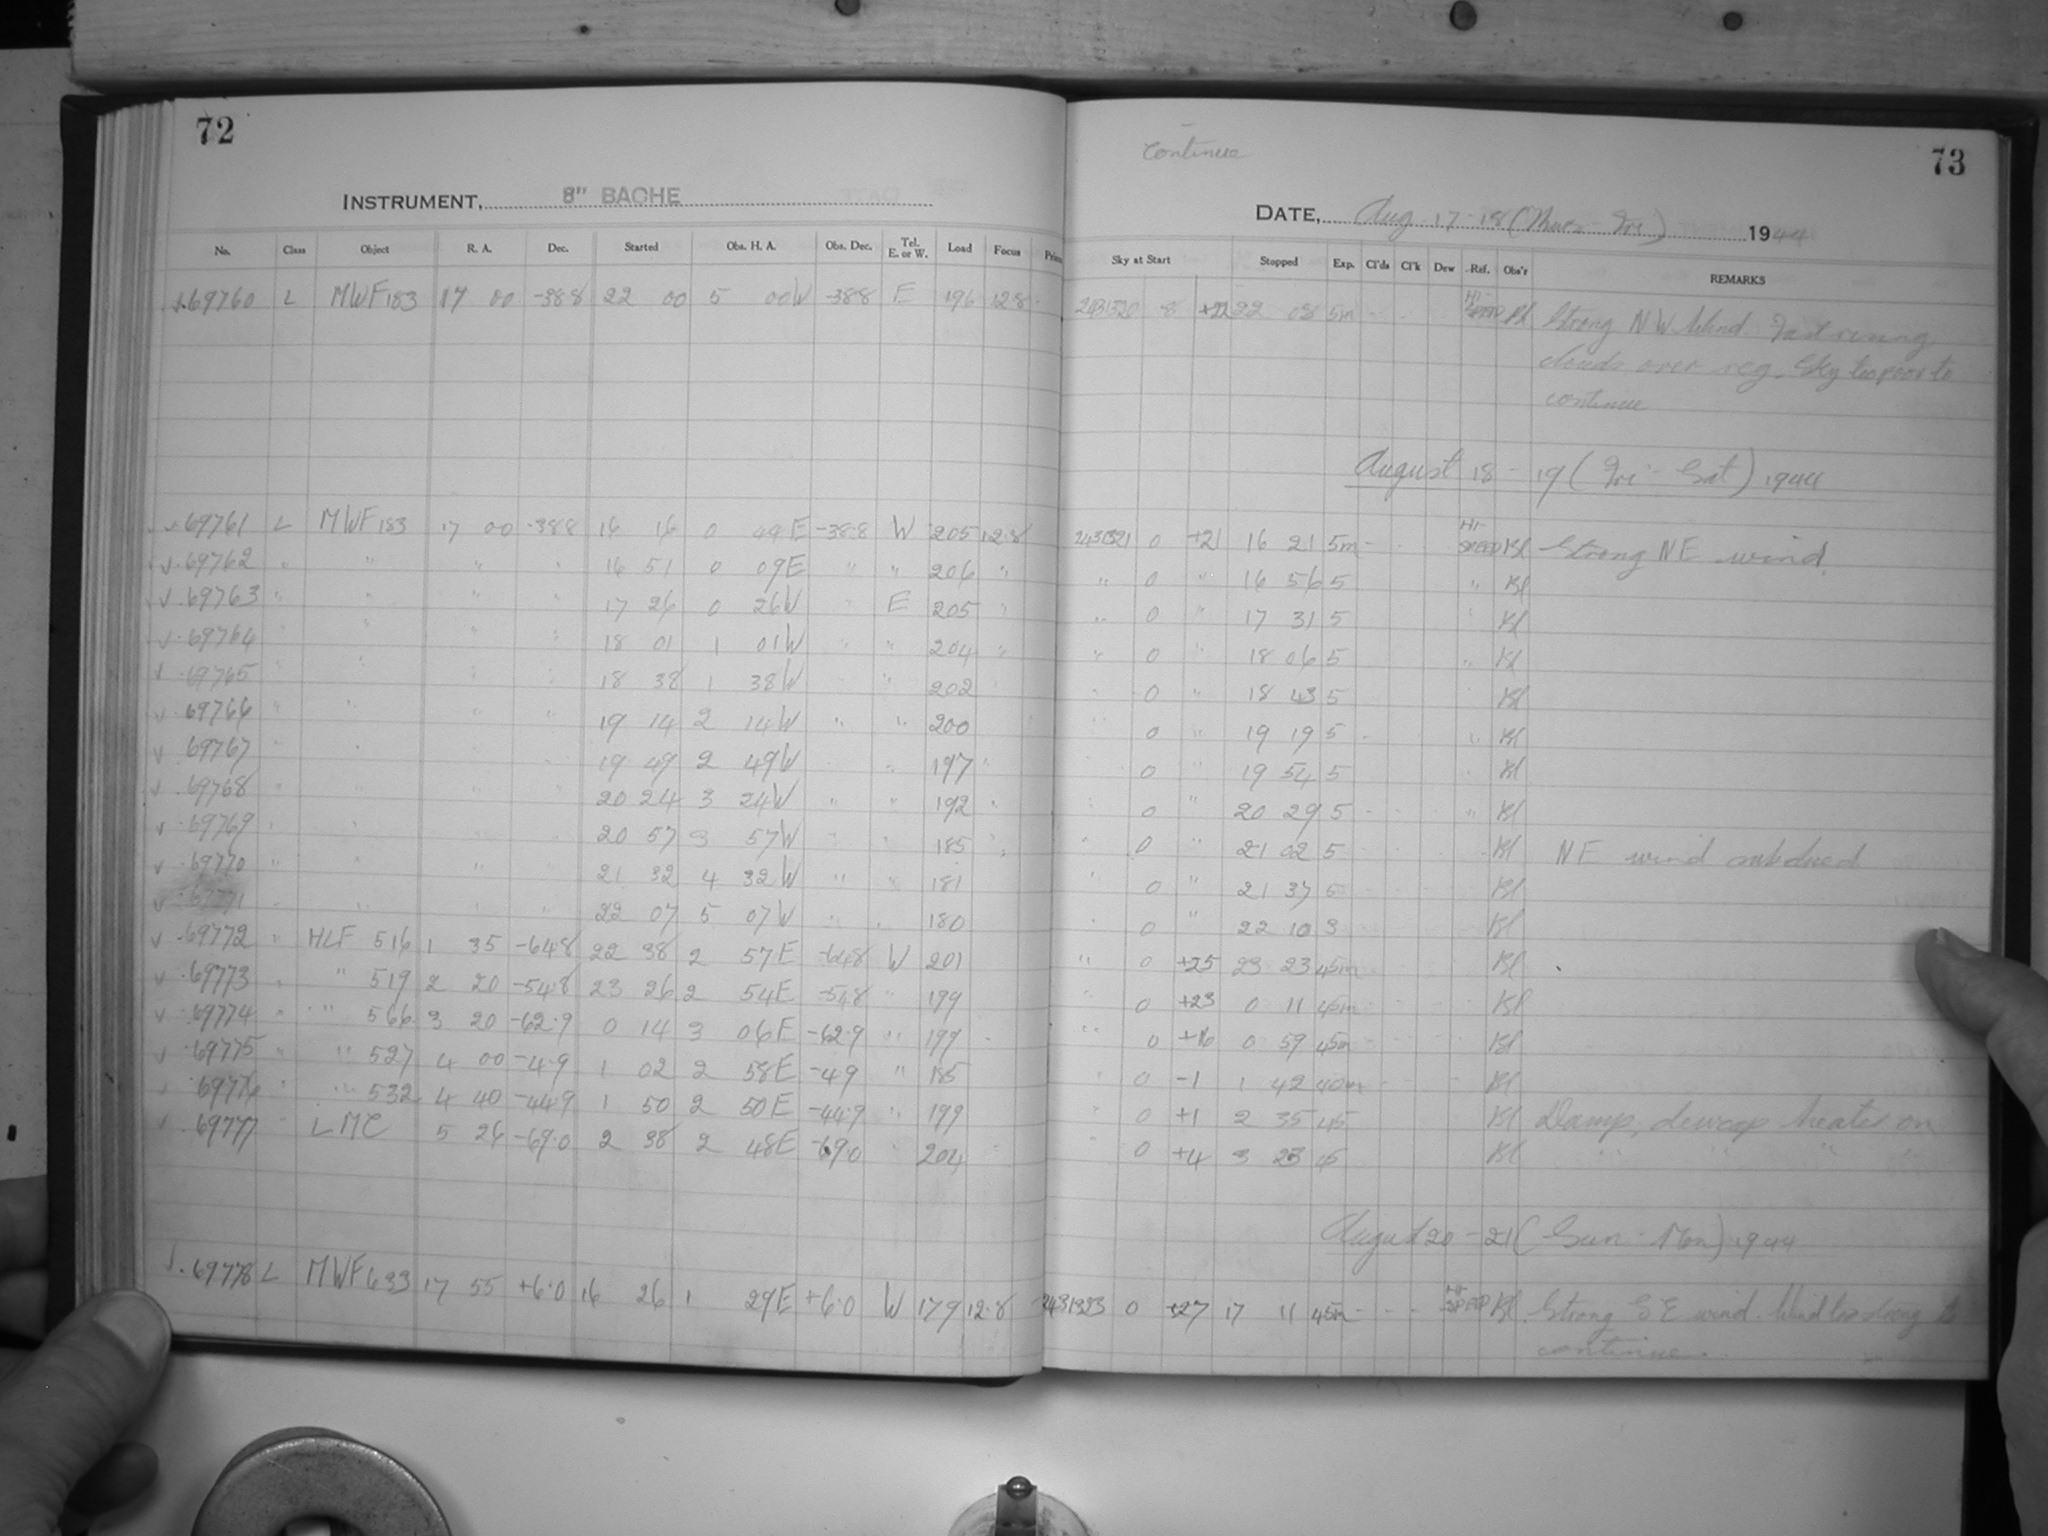 72
INSTRUMENT, 8" BACHE
No. Class Object R. A. Dec. Started Obs. H. A. Obs. Dec. Tel. E. or W. Load Focus
69760 L MWF183 17 00 -388 22 00 5 00W -388 E 196 12.8
69761 L MWF183 17 00 -388 16 16 0 44E -38.8 W 205 12.8
69762 " " " " 16 51 0 09E " " 206 "
69763 " " " " 17 26 0 26W " E 205 "
69764 " " " " 18 01 1 01W " " 204 "
69765 " " " 18 38 1 38W " 202
69766 " " " " 19 14 2 14W " " 200
69767 " 19 49 2 49W " 197 "
69768 " " " 20 24 3 24W " " 192 "
69769 " 20 57 3 57W " 185 "
69770 " " " 21 32 4 32W " " 181
69771 " " " 22 07 5 07W " 180
69772 " HLF 516 1 35 -648 22 38 2 57E -648 W 201
69773 " " 519 2 20 -548 23 26 2 54E -548 " 199
69774 " " 566 3 20 -62.9 0 14 3 06E -62.9 " 199
69775 " " 527 4 00 -49 1 02 2 58E -49 " 185
69776 " " 532 4 40 -44.9 1 50 2 50E -44.9 " 199
69777 " LMC 5 26 -69.0 2 38 2 48E -69.0 " 204
69778 L MWF633 17 55 +6.0 16 26 1 29E +6.0 W 179 12.8
Continue
73
DATE, Aug 17-18 (Thurs-Fri) 1944
Sky at Start Stopped Exp. Cl'ds Cl'k Dew Ref. Obs'r REMARKS
2431320 8 +22 22 08 5m HI-SPEED Bl Strong NW Wind. Fast
clouds over reg. Sky too poor to
continue
August 18 - 19 (Fri - Sat) 1944
2431321 0 +21 16 21 5m HI-SPEED Bl Strong NE wind
" 0 " 16 56 5 " Bl
" 0 17 31 5 " Bl
" 0 " 18 06 5 " Bl
" 0 " 18 43 5 Bl
" 0 " 19 19 5 " Bl
0 " 19 54 5 Bl
" 0 " 20 29 5 " Bl
" 0 " 21 02 5 Bl NE wind subdued
" 0 " 21 37 5 Bl
" 0 " 22 10 3 Bl
" 0 +25 23 23 45m Bl
" 0 +23 0 11 45m Bl
" 0 +16 0 59 45m Bl
" 0 -1 1 42 40m Bl
" 0 +1 2 35 45 Bl Damp, dewcap heater on
" 0 +4 3 23 45 Bl " " " "
August 20 - 21 (Sun - Mon) 1944
2431323 0 +27 17 11 45m HI-SPEED Bl Strong SE wind. Wind too strong to
continue.